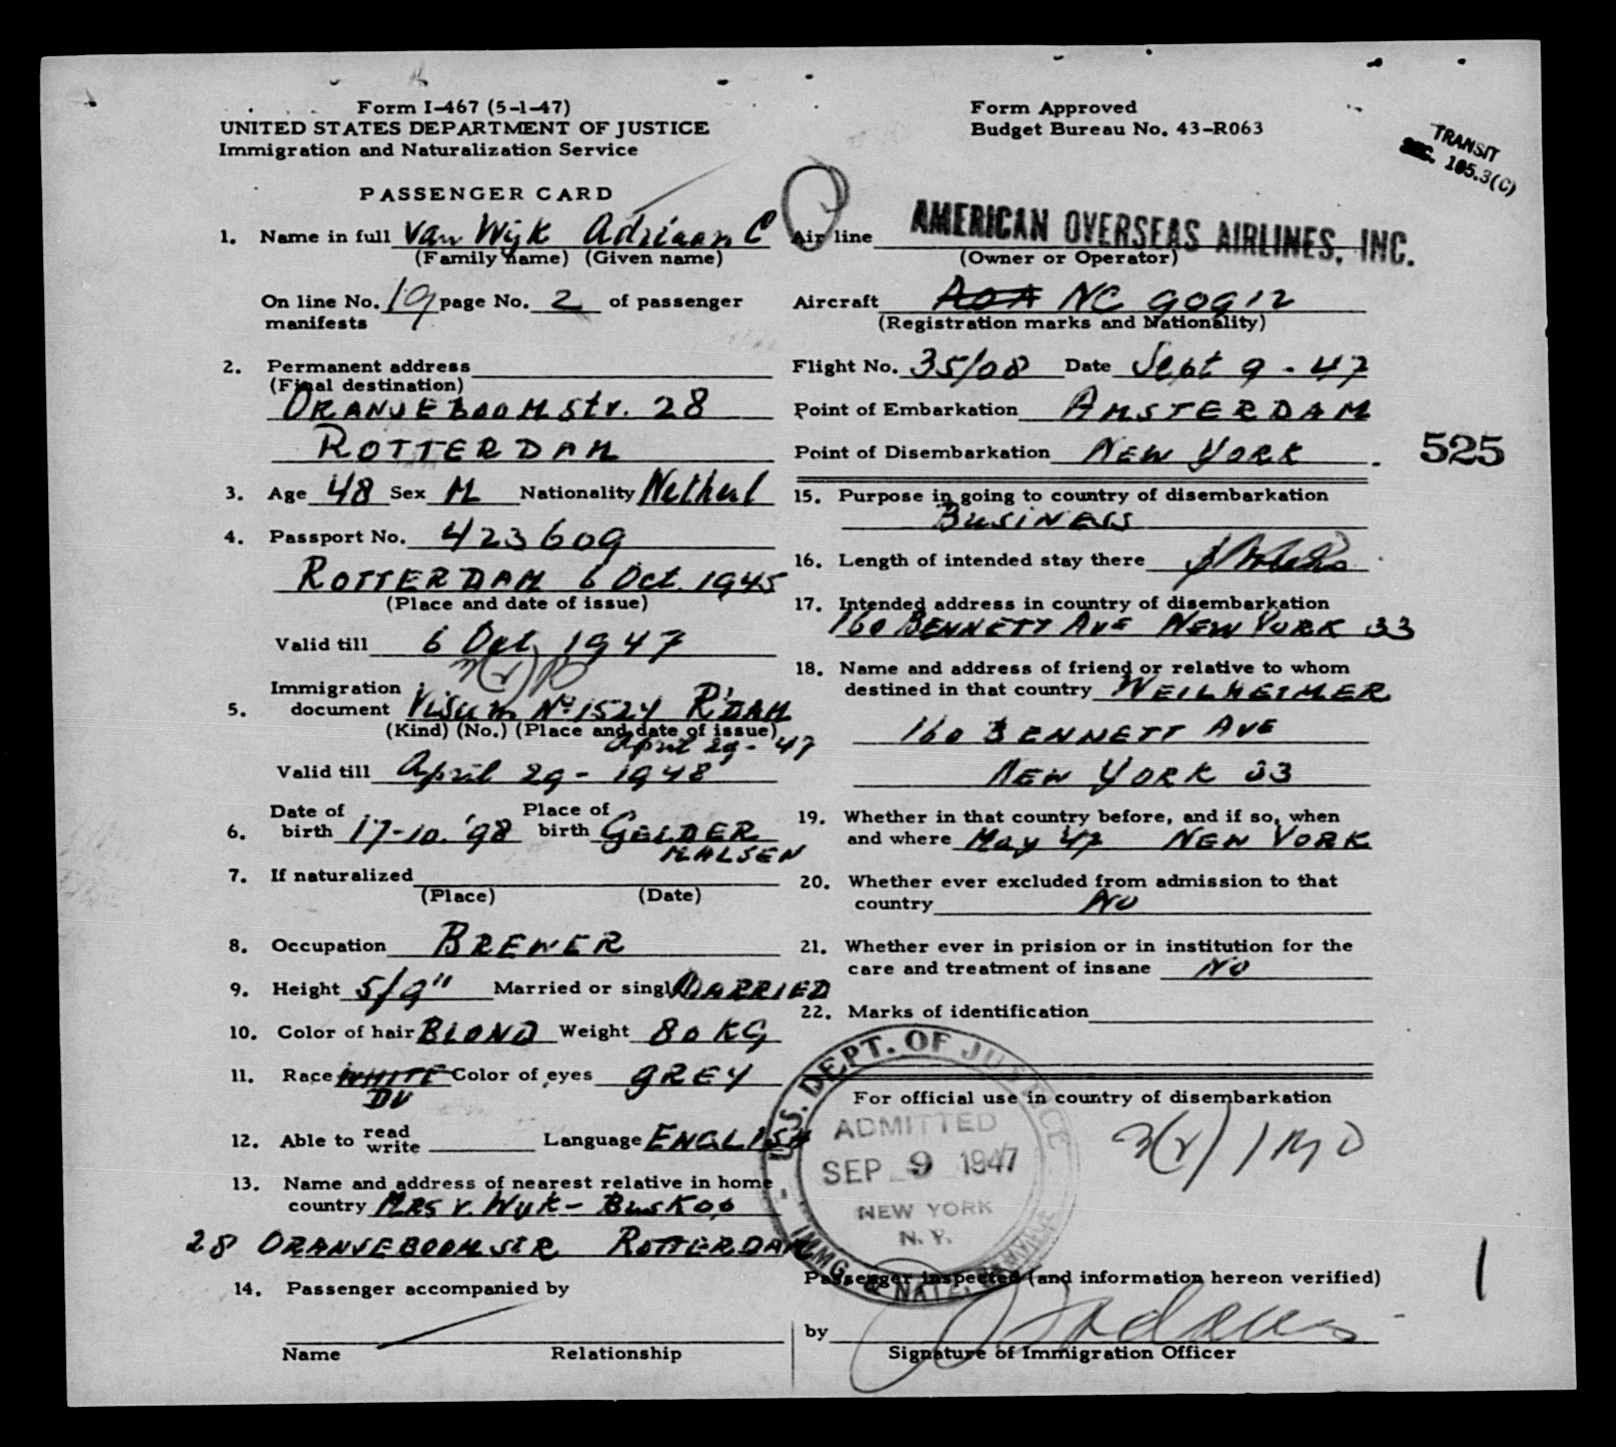 Form I-467 (5-1-47)
UNITED STATES DEPARTMENT OF JUSTICE
Immigration and Naturalization Service
Form Approved
Budget Bureau No. 43-R063
TRANSIT
SEC. 105.3(C)
PASSENGER CARD
1. Name in full Van Wijk Adriaan C
(Family name) (Given name)
On line No. 19 page No. 2 of passenger
manifests
2. Permanent address
(Final destination)
ORANJEBOOMStr. 28
ROTTERDAM
3. Age 48 Sex M Nationality Netherl
4. Passport No. 423609
ROTTERDAM 6 Oct. 1945
(Place and date of issue)
Valid till 6 Oct, 1947
Immigration
5. document Visum No 1524 R'DAM
(Kind) (No.) (Place and date of issue)
April 29 - 47
Valid till April 29 - 1948
Date of Place of
6. birth 17-10.'98 birth GELDER
MALSEN
7. If naturalized
(Place) (Date)
8. Occupation BREWER
9. Height 5/9" Married or single MARRIED
10. Color of hair BLOND Weight 80 KG
11. Race WHITE Color of eyes GREY
DU
12. Able to read
write Language ENGLISH
13. Name and address of nearest relative in home
country MRS V. Wijk - Buskop
28 ORANJEBOOMSTR ROTTERDAM
14. Passenger accompanied by
Name Relationship
Air line AMERICAN OVERSEAS AIRLINES, INC.
(Owner or Operator)
Aircraft AOA NC 90912
(Registration marks and Nationality)
Flight No. 35/08 Date Sept 9 - 47
Point of Embarkation AMSTERDAM
Point of Disembarkation NEW YORK
525
15. Purpose in going to country of disembarkation
BUSINESS
16. Length of intended stay there
17. Intended address in country of disembarkation
160 BENNETT AVE NEW YORK 33
18. Name and address of friend or relative to whom
destined in that country WEILHEIMER
160 BENNETT AVE
NEW YORK 33
19. Whether in that country before, and if so, when
and where May 47 NEW YORK
20. Whether ever excluded from admission to that
country NO
21. Whether ever in prision or in institution for the
care and treatment of insane NO
22. Marks of identification
For official use in country of disembarkation
U.S. DEPT. OF JUSTICE
ADMITTED
SEP 9 1947
NEW YORK
N. Y.
IMMG. & NATZ. SERVICE
Passenger inspected (and information hereon verified)
by
Signature of Immigration Officer
1